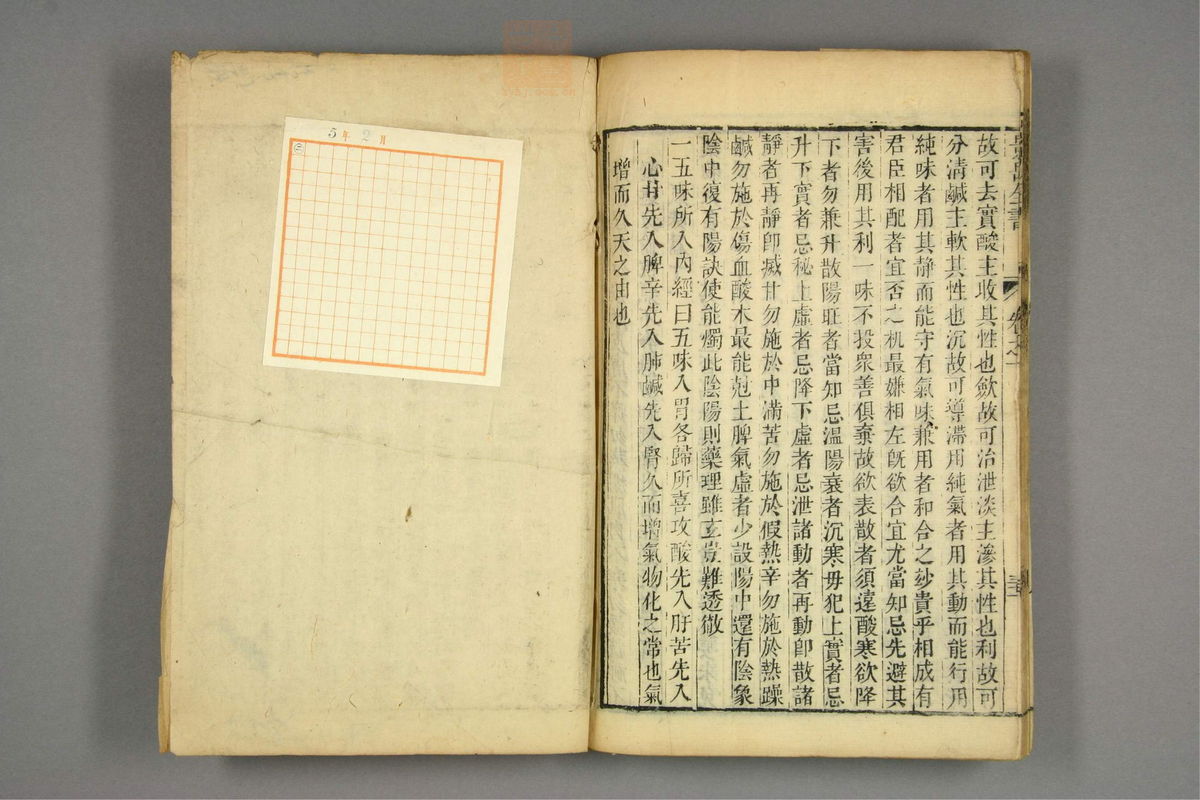 故可去實酸主收其性也歛故可治泄淡主滲其性也利故可
分清鹹主軟其性也沉故可導滯用純氣者用其動而能行用
純味者用其静而能守有氣味兼用者和合之玅貴乎相成有
君臣相配者宜否之机最嫌相左旣欲合宜尤當知忌先避其
害後用其利一味不投衆善俱棄故欲表散者須遠酸寒欲降
下者勿兼升散陽旺者當知忌溫陽衰者沉寒毋犯上實者忌
升下實者忌秘上虛者忌降下虛者忌泄諸動者再動卽散諸
靜者再靜卽滅甘勿施於中滿苦勿施於假熱辛勿施於熱躁
鹹勿施於傷血酸木最能尅土脾氣虛者少設陽中還有陰象
陰中復有陽訣使能燭此陰陽則藥理雖玄豈難透徹
一五味所入內經曰五味入胃各歸所喜攻酸先入肝苦先入
心甘先入脾辛先入肺鹹先入腎久而增氣物化之常也氣
增而久夭之由也
全書
卷之一
5年2月